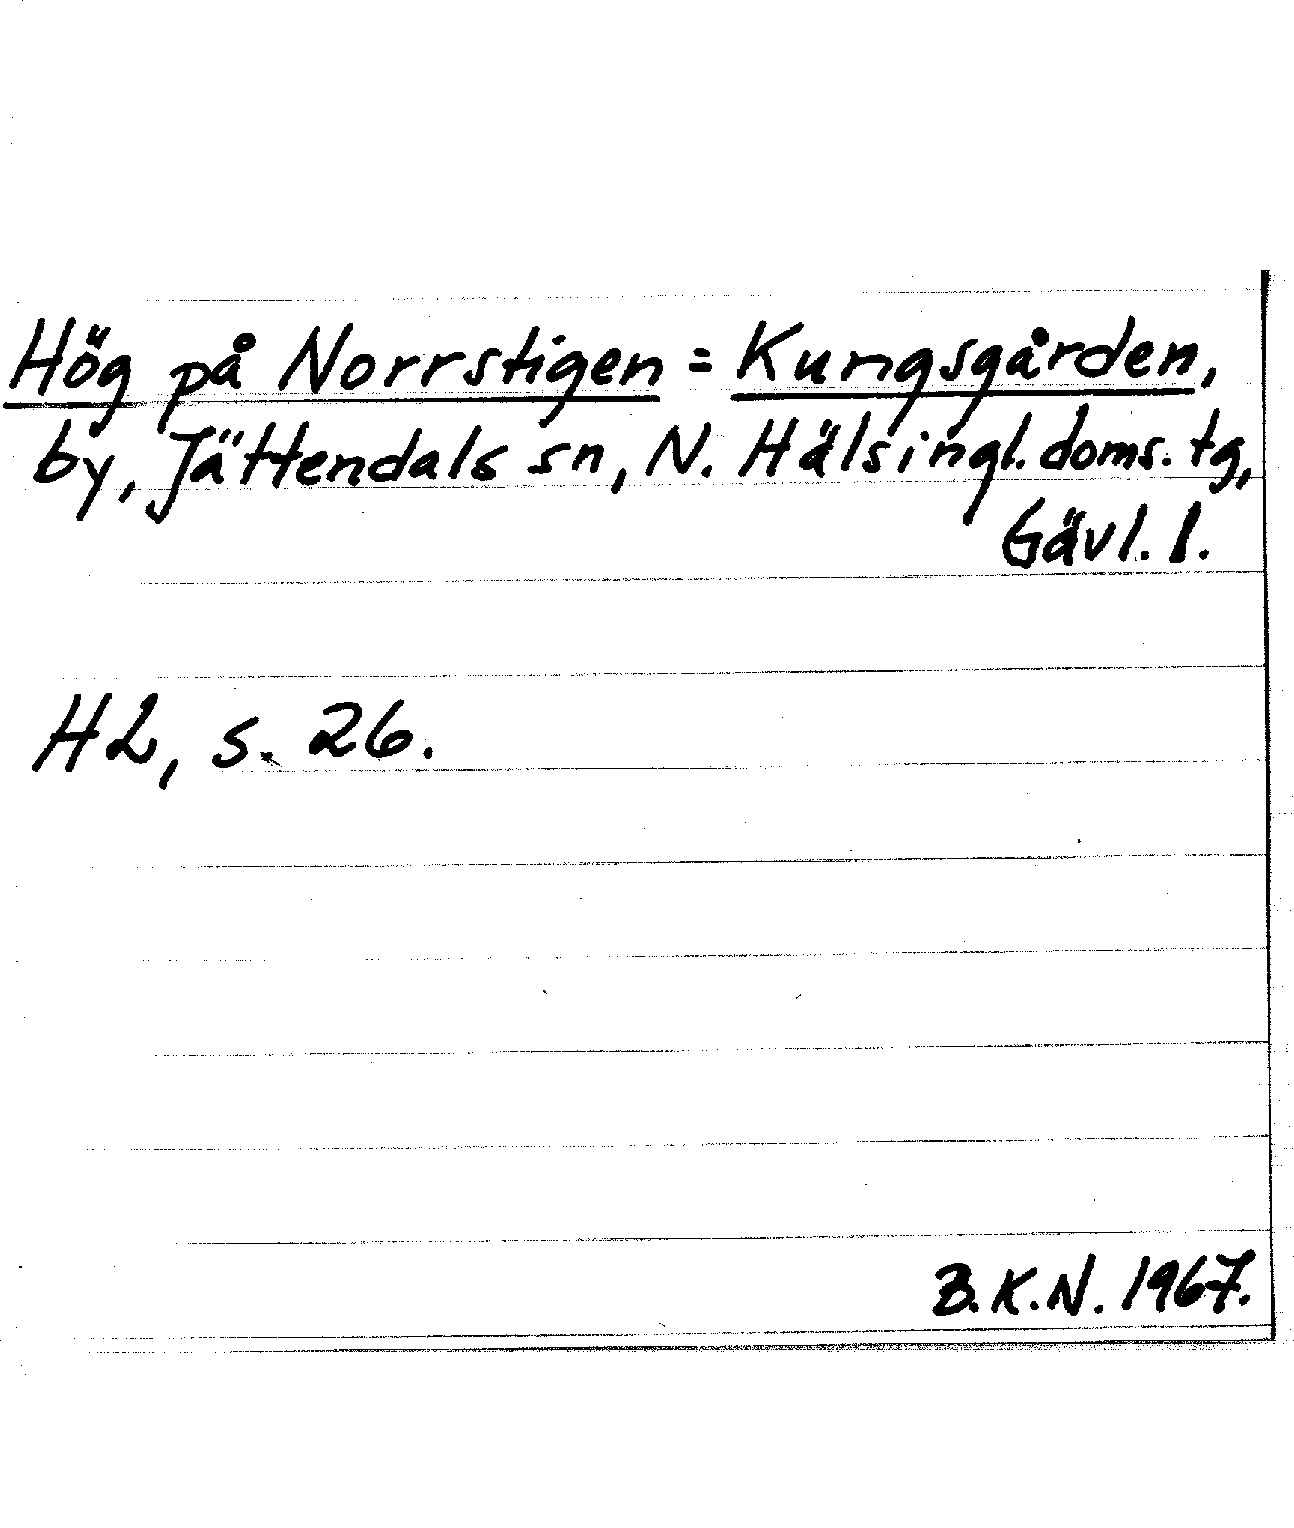 Hög på Norrstigen = Kungsgården,
by, Jättendals sn, N. Hälsingl. doms. tg,
Gävl. l.
H2, s. 26.
B.K.N. 1967.